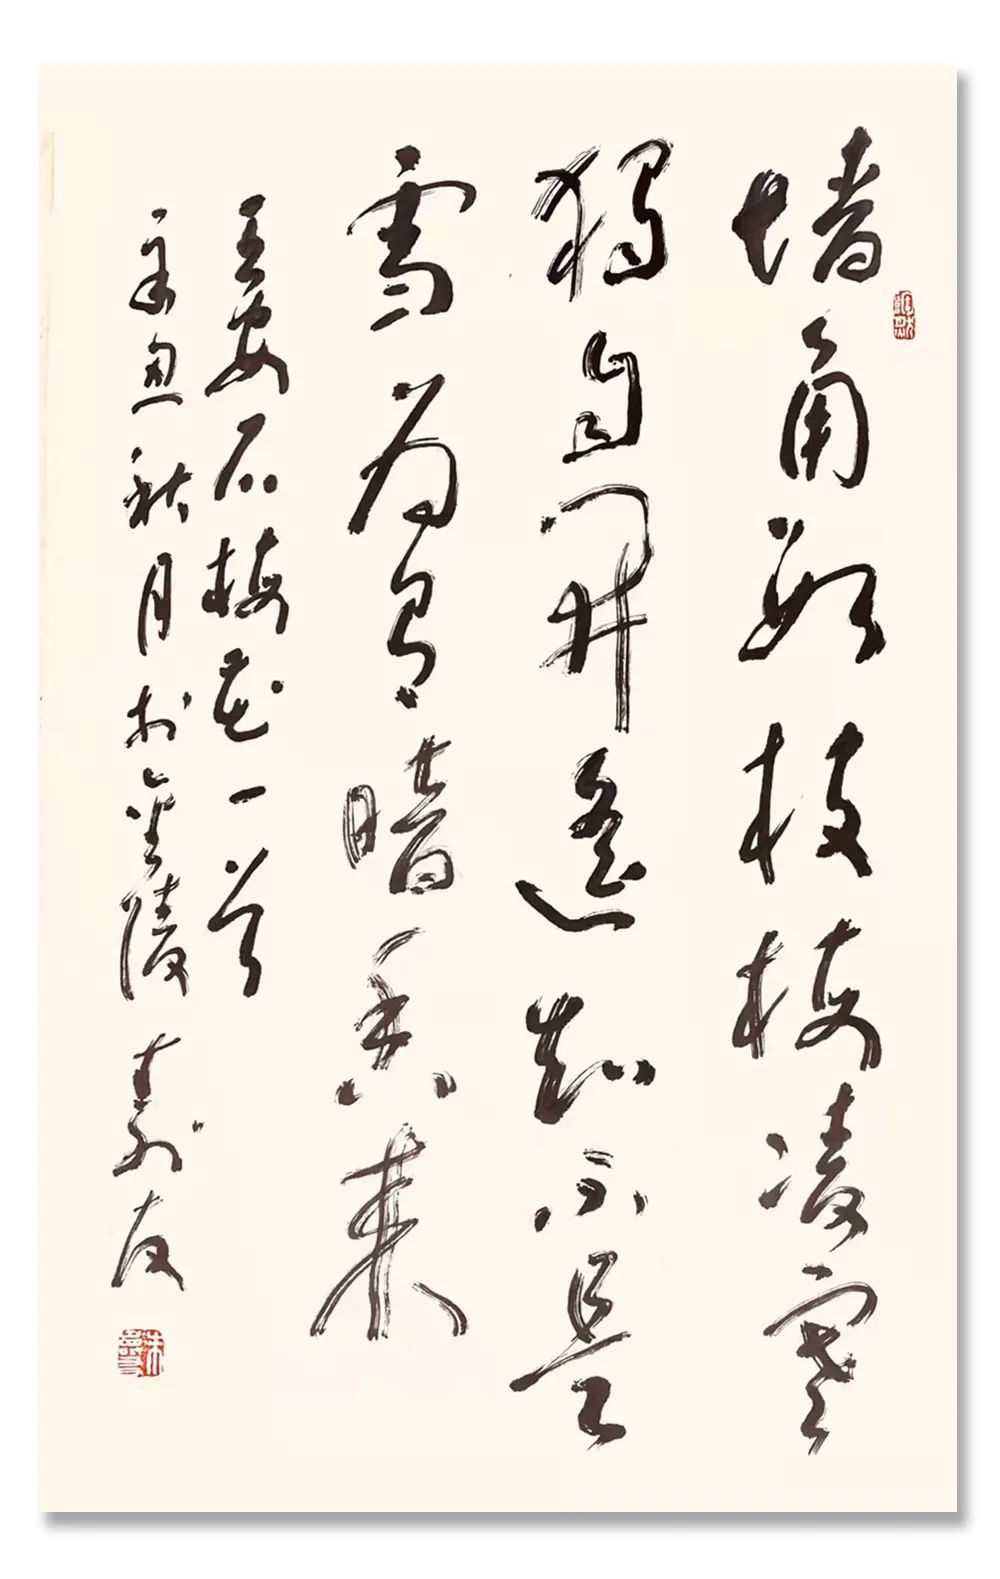 墙角数枝梅凌寒
独自开遥知不是
雪为有暗香来
王安石梅花一首
辛丑秋月於金陵 寿友